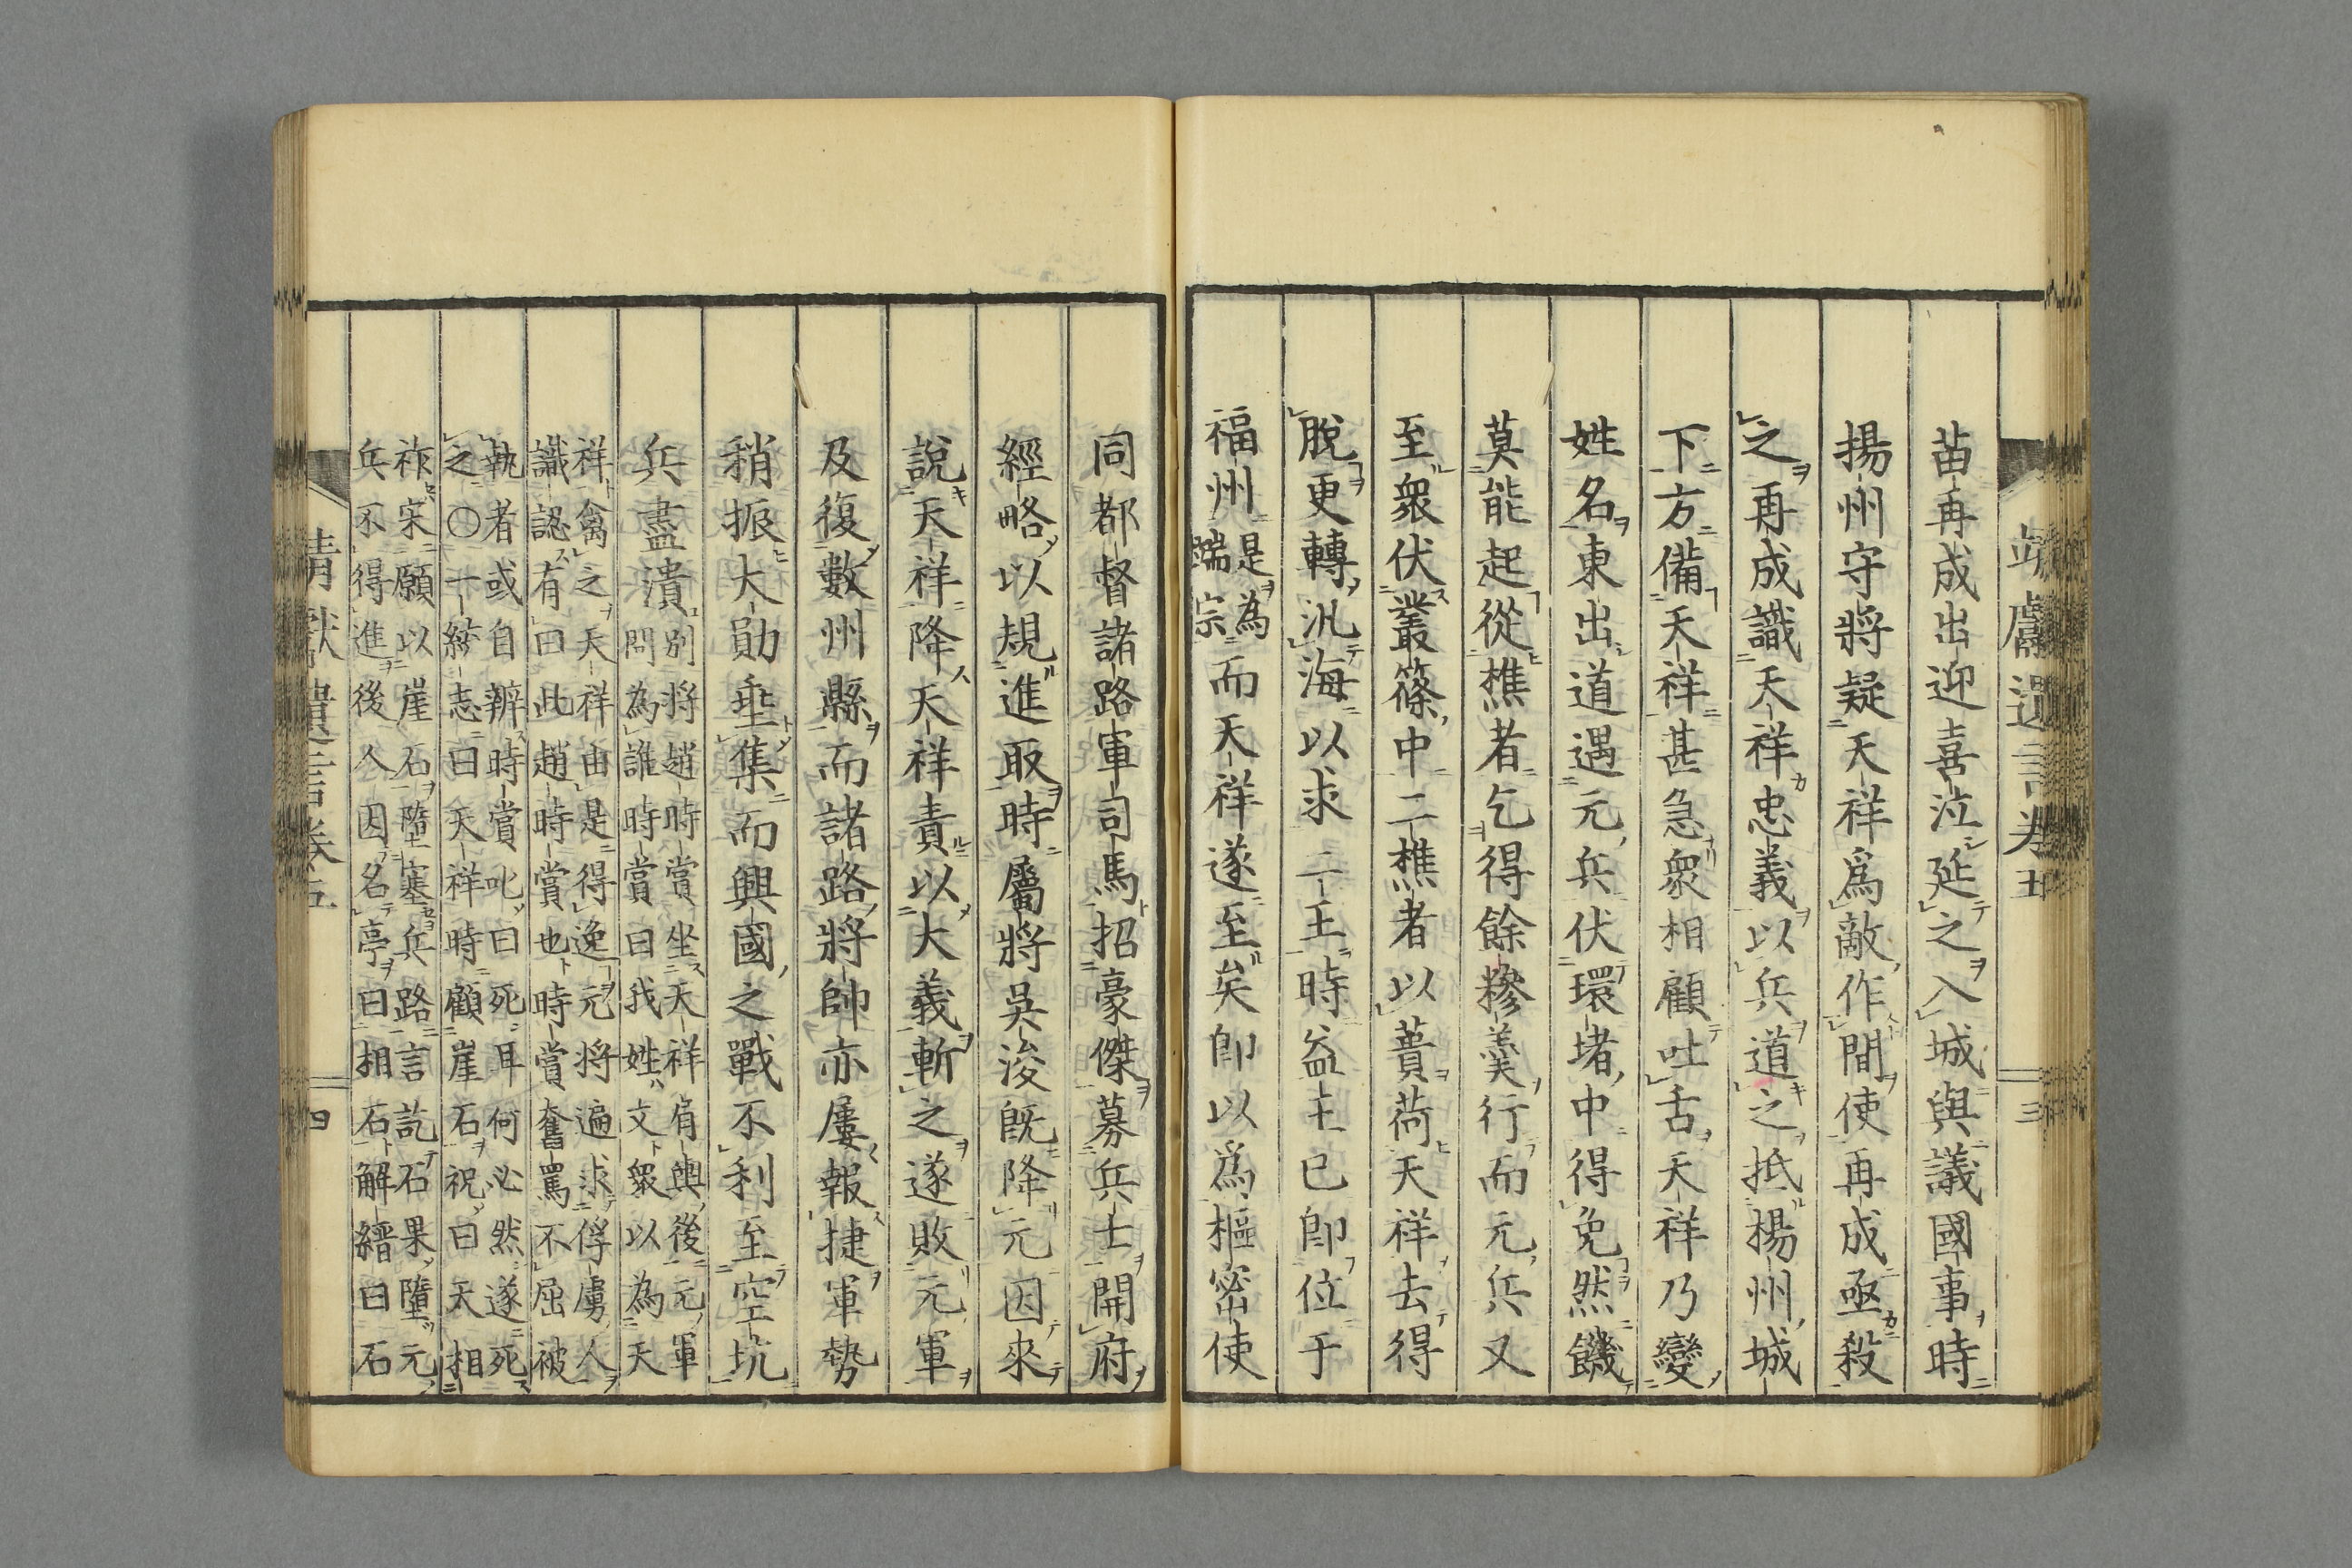 苗再成出迎喜泣延之入城與議國事時
揚州守將疑天祥爲敵作間使再成亟殺
之再成識天祥忠義以兵道之抵揚州城
下方備天祥甚急衆相顧吐舌天祥乃變
姓名東出道遇元兵伏環堵中得免然饑
莫能起從樵者乞得餘糝羹行而元兵又
至衆伏叢篠中二樵者以蕢荷天祥去得
脫更轉汎海以求二王時益王已卽位于
福州是為端宗而天祥遂至矣卽以爲樞密使
同都督諸路軍司馬招豪傑募兵士開府
經略以規進取時屬將吳浚旣降元因來
說天祥降天祥責以大義斬之遂敗元軍
及復數州縣而諸路將帥亦屢報捷軍勢
稍振大勛垂集而興國之戰不利至空坑
兵盡潰別将趙時賞坐天祥肩輿後元軍
問為誰時賞曰我姓文衆以為天
祥禽之天祥由是得逸元将遍求俘虜人
識認有曰此趙時賞也時賞奮罵不屈被
執者或自辨時賞叱曰死耳何必然遂死
之〇一統志曰天祥時顧崖石祝曰天相
祚宋願以崖石墮塞兵路言訖石果墮元
兵不得進後人因名亭曰相石解縉曰石
靖獻遺言卷五
三
四